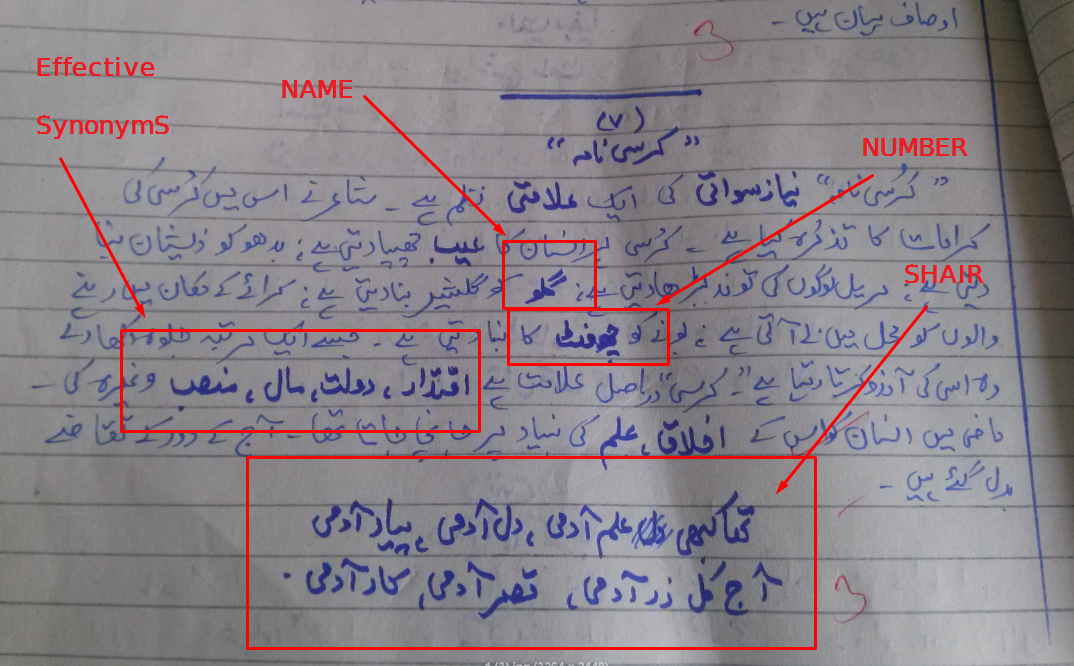 اوصاف بیان ہیں۔
3
Effective
SynonymS
NAME
NUMBER
SHAIR
(۷)
”کرسی نامہ“
”کرسی نامہ“ نیاز سواتی کی ایک علامتی نظم ہے۔ شاعر نے اس میں کرسی کی
کرامات کا تذکرہ کیا ہے۔ کرسی انسان کا عیب چھپا دیتی ہے؛ بدھو کو ذیشان بنا
دیتی ہے؛ مریل لوگوں کی توند بڑھا دیتی ہے؛ گلو کو گلشیر بنا دیتی ہے؛ کرائے کے مکان میں رہنے
والوں کو محل میں لے آتی ہے؛ بونے کو چھ فٹ کا بنا دیتی ہے۔ جسے ایک مرتبہ جلوہ دکھا دے
وہ اس کی آرزو کرتا رہتا ہے۔ ”کرسی“ دراصل علامت ہے اقتدار، دولت، مال، منصب وغیرہ کی۔
ماضی میں انسان کو اس کے اخلاق، علم کی بنیاد پر جانچا جاتا تھا۔ آج کے دور کے تقاضے
بدل گئے ہیں۔
تھا کبھی علم آدمی، دل آدمی، پیار آدمی
آج کل زر آدمی، قصر آدمی، کار آدمی
3